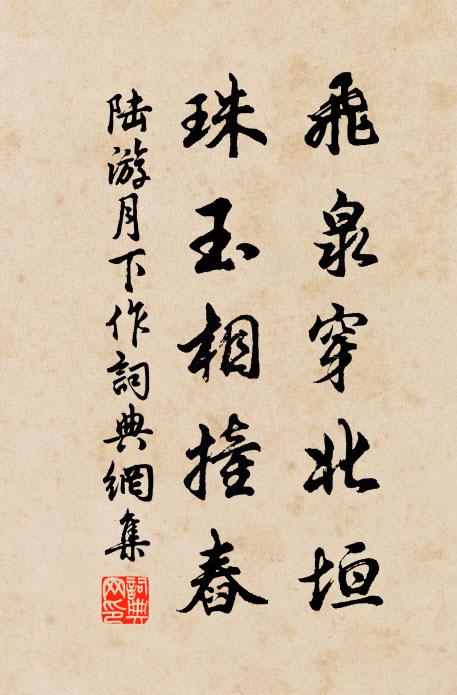 飛泉穿北垣
珠玉相撞舂
陸游月下作詞典網集
詞典网印